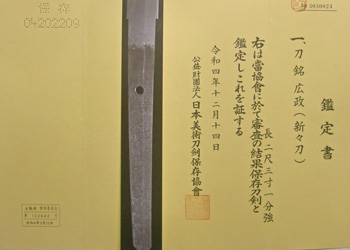 鑑定書
一、刀 銘 広政(新々刀)
長二尺三寸一分強
右は當協會に於て審査の結果保存刀剣と
鑑定しこれを証する
令和四年十二月十四日
公益財團法人日本美術刀剣保存協會
保存
04202209